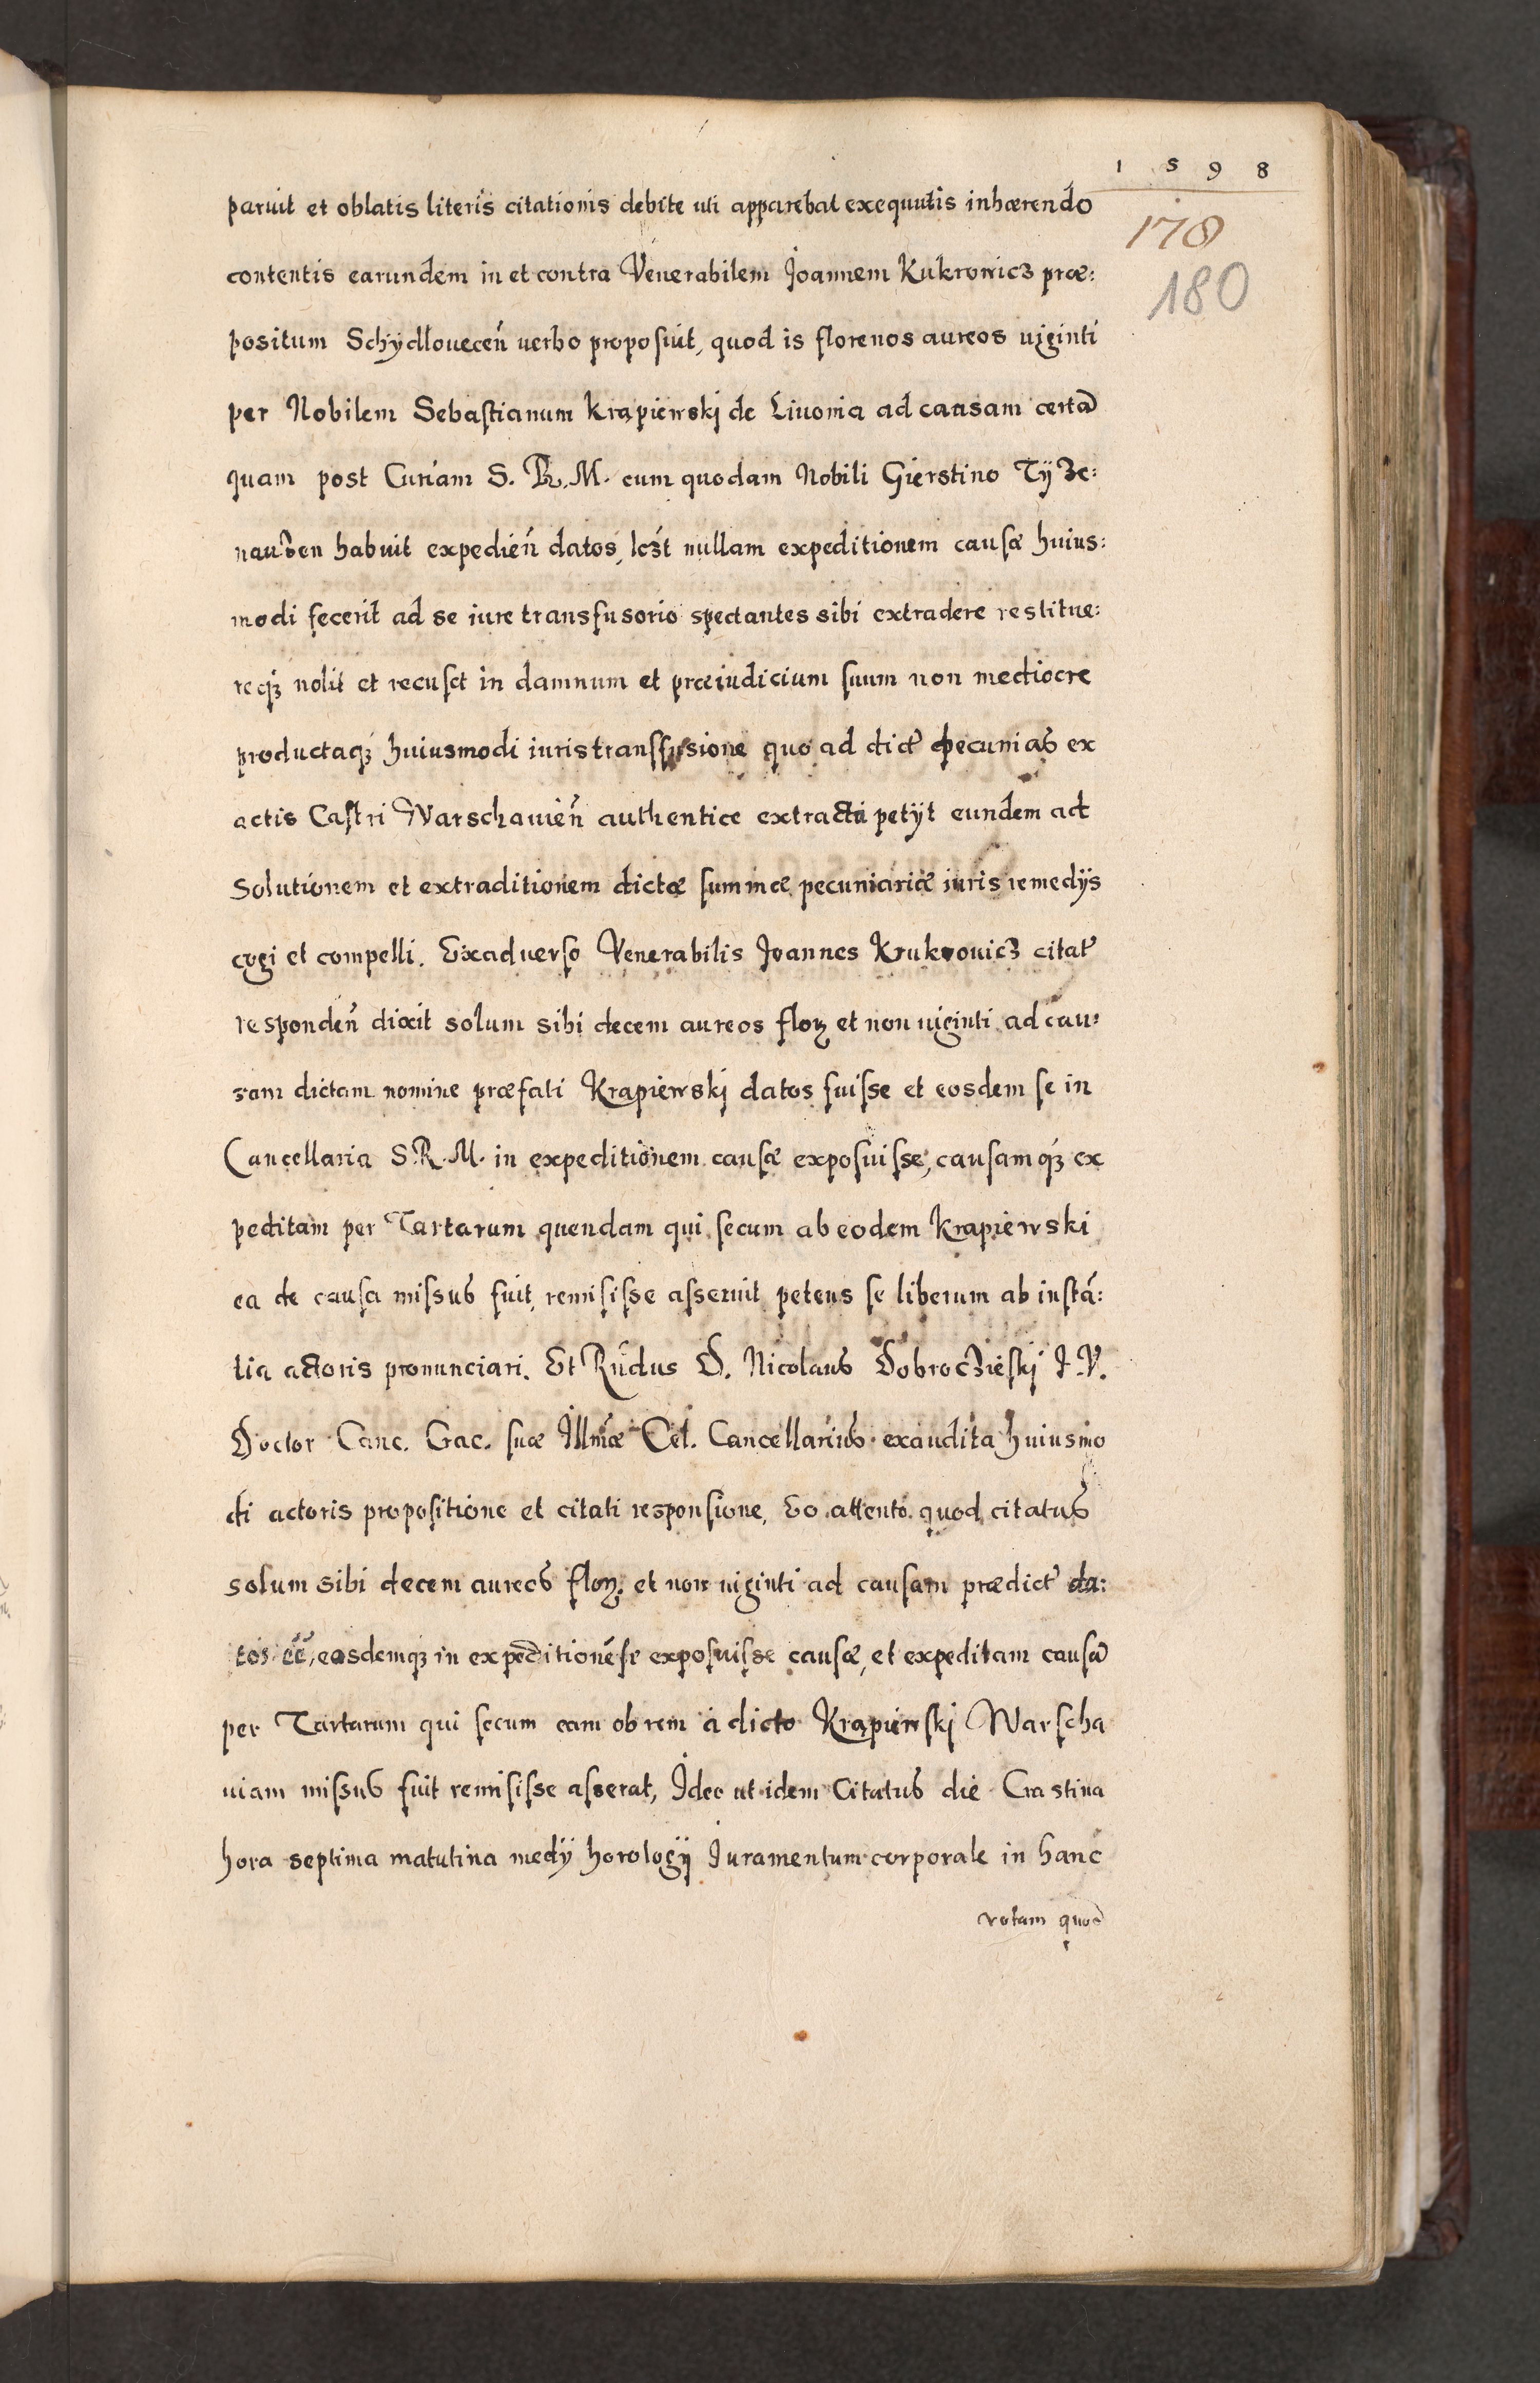 1 5 9 8
178
180
paruit et oblatis literis citationis debite uti apparebat exequutis inhærendo
contentis earundem in et contra Venerabilem Joannem Kukrowicz præ:
positum Schÿdlouecen̄ uerbo proposuit, quod is florenos aureos uiginti
per Nobilem Sebastianum Krapiewskj de Liuonia ad causam certā
quam post Curiam S. R. M. cum quodam Nobili Gierstino Tÿze:
nauzen habuit expedien̄ datos, lczt nullam expeditionem causæ huius:
modi fecerit ad se iure transfusorio spectantes sibi extradere restitue:
reqz nolit et recuset in damnum et præiudicium suum non mediocre
productaqz huiusmodi iuris transfusione quo ad dict pecunias ex
actis Castri Warschauien̄ authentice extracti petÿt eundem ad
solutionem et extraditionem dictæ summæ pecuniariæ iuris remedÿs
cogi et compelli. Exaduerso Venerabilis Joannes Krukrouicz citat
responden̄ dixit solum sibi decem aureos florz et non uiginti ad cau:
sam dictam nomine præfati Krapiewskj datos fuisse et eosdem se in
Cancellaria S. R. M. in expeditionem causæ exposuisse, causamqz ex
peditam per Tartarum quendam qui secum ab eodem Krapiewski
ea de causa missus fuit, remisisse asseruit petens se liberum ab instā:
tia actoris pronunciari. Et Rn̄dus D. Nicolaus Dobrocziеskj J. V.
Doctor Canc. Crac. suæ Illmæ Cel. Cancellarius exaudita huiusmo
di actoris propositione et citati responsione, Eo attento quod citatus
solum sibi decem aureos florz. et non uiginti ad causam prædict da:
tos eē, eosdemqz in expeditionē se exposuisse causæ, et expeditam causā
per Tartarum qui secum eam ob rem à dicto Krapiewskj Warscha
uiam missus fuit remisisse asserat, Ideo ut idem Citatus die Crastina
hora septima matutina medÿ horologÿ Juramentum corporale in hanc
rotam quod